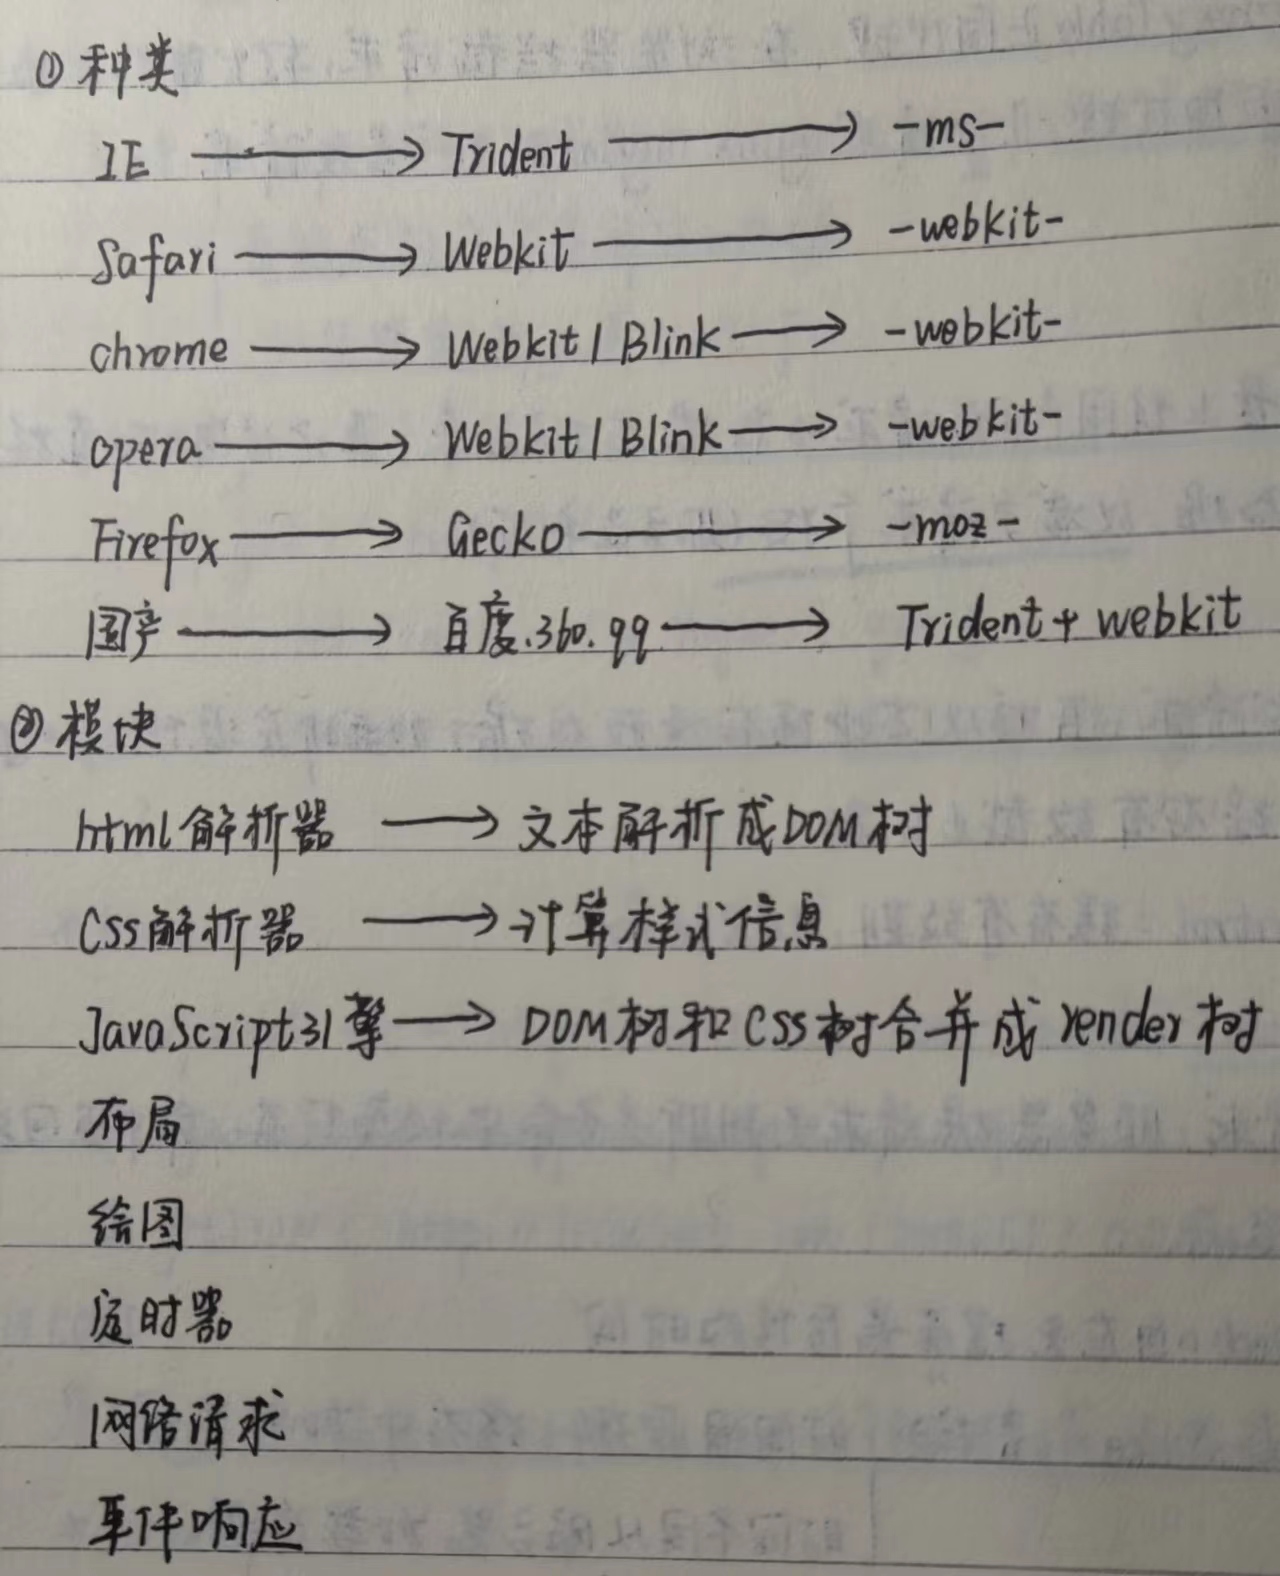 ① 种类
IE → Trident → -ms-
Safari → Webkit → -webkit-
chrome → Webkit / Blink → -webkit-
opera → Webkit / Blink → -webkit-
Firefox → Gecko → -moz-
国产 → 百度.360.qq → Trident + webkit
② 模块
html解析器 → 文本解析成DOM树
Css解析器 → 计算样式信息
JavaScript引擎 → DOM树和CSS树合并成render树
布局
绘图
定时器
网络请求
事件响应